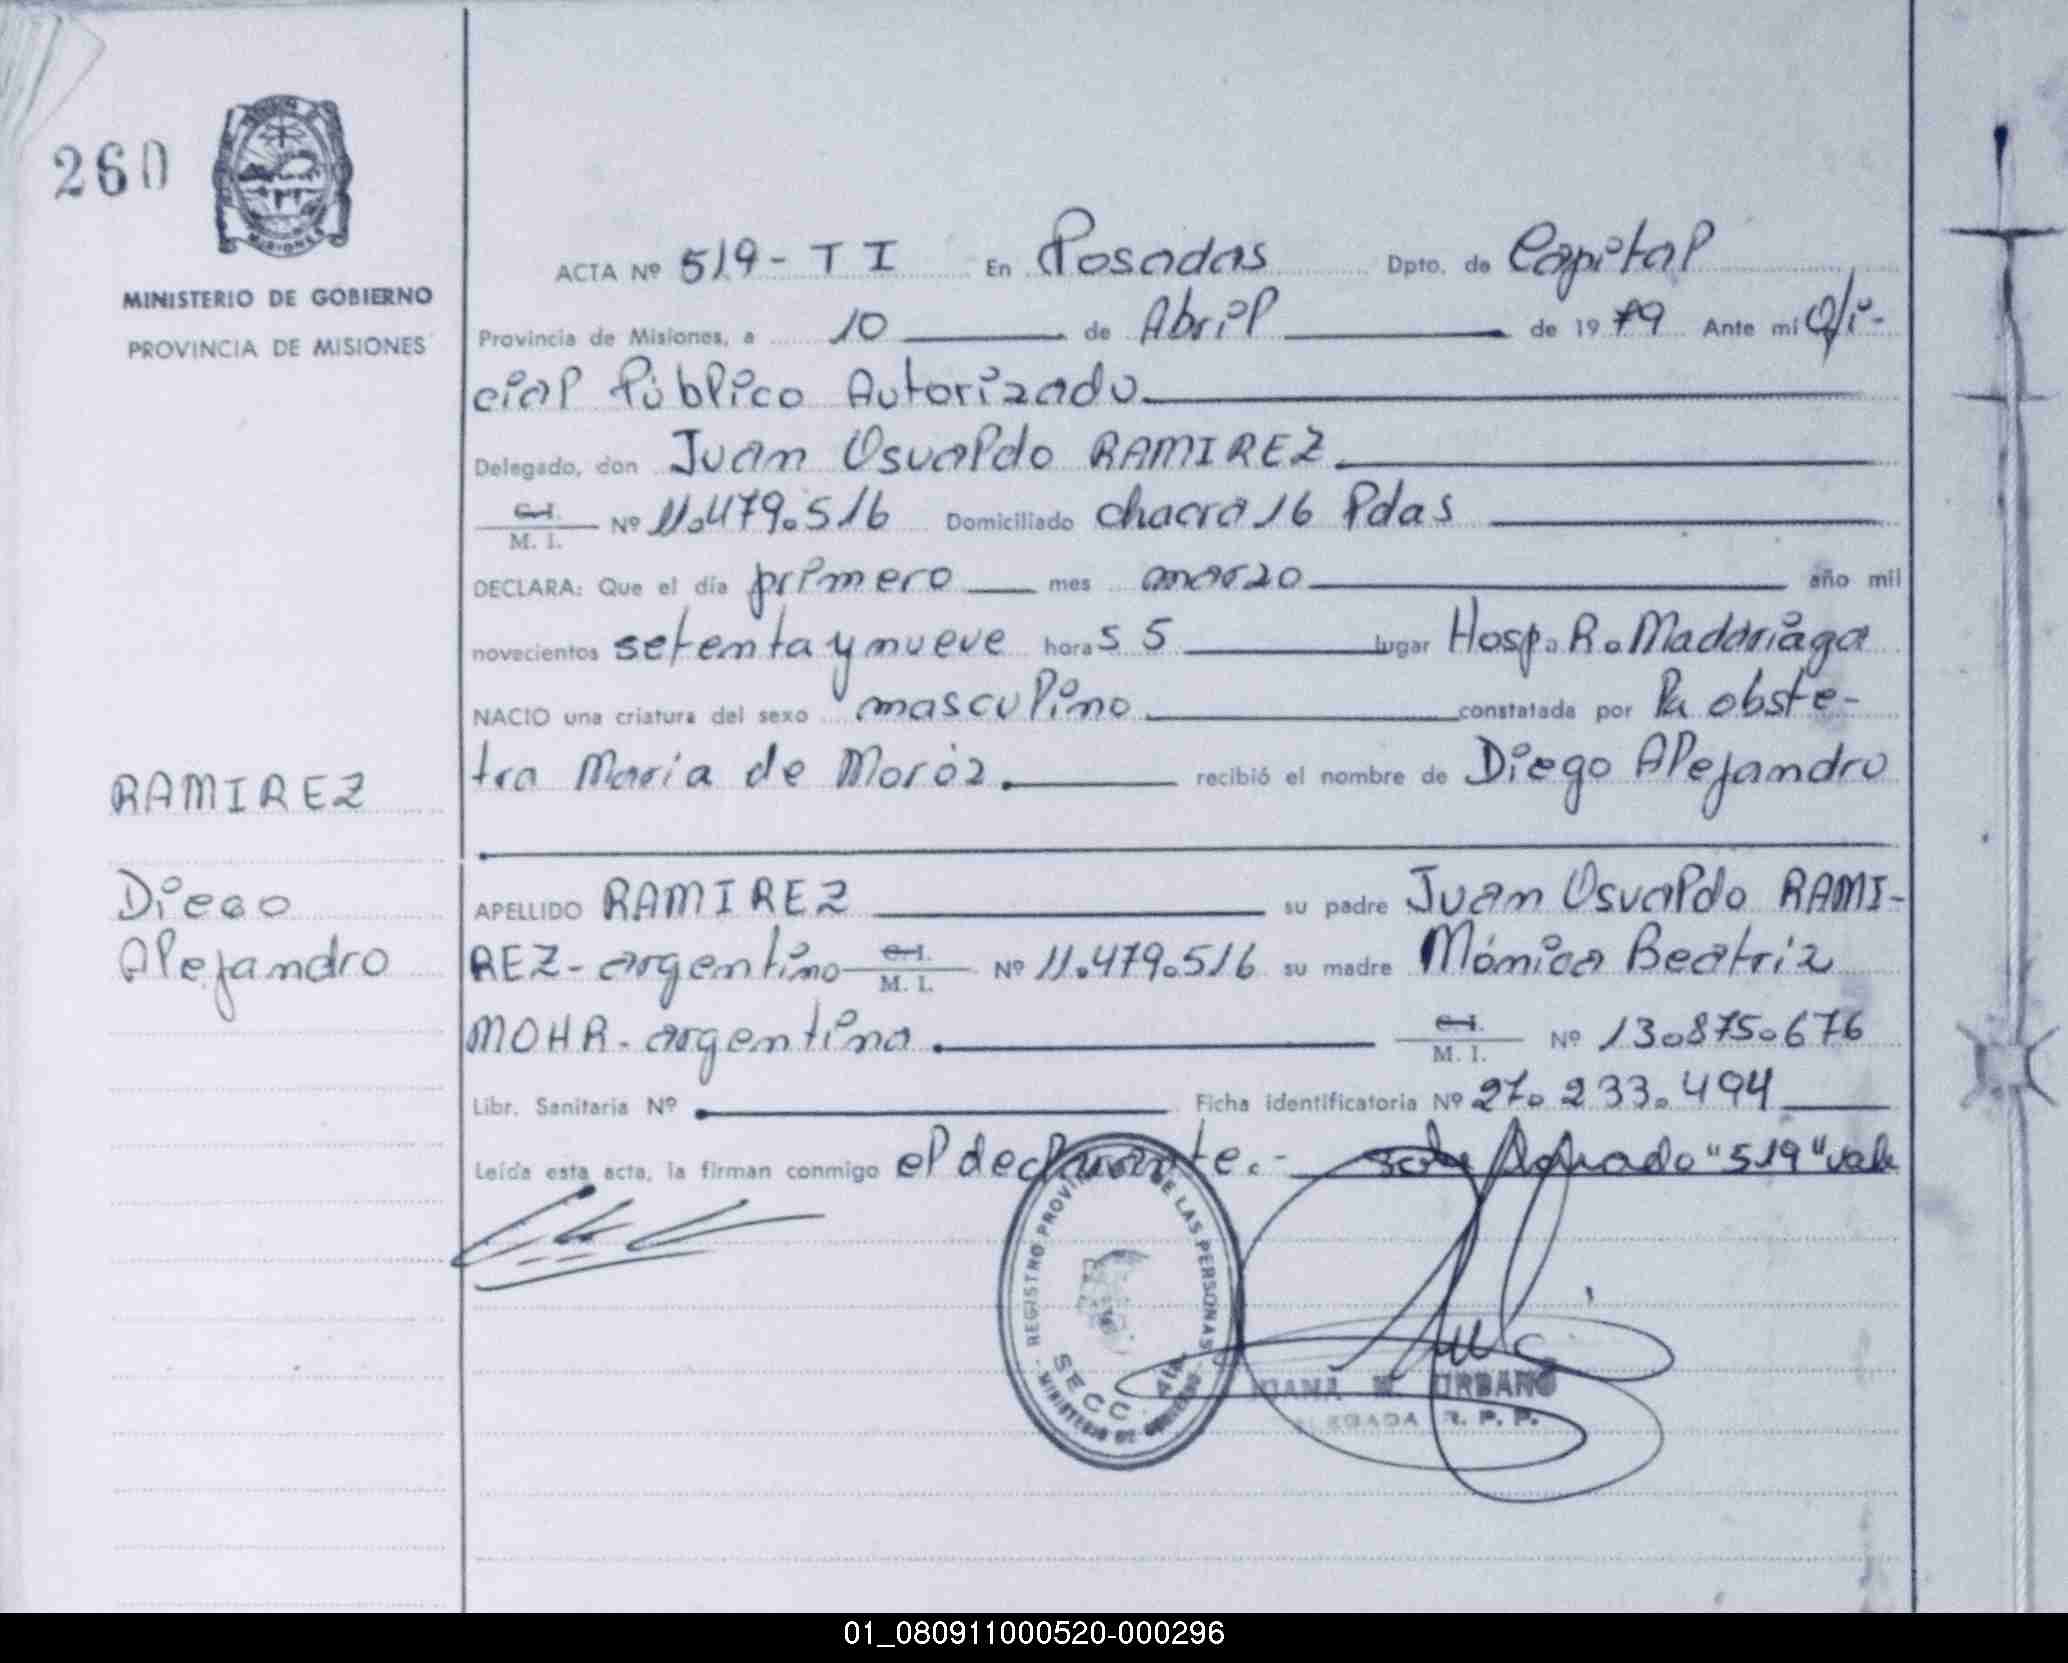 260
MINISTERIO DE GOBIERNO
PROVINCIA DE MISIONES
ACTA Nº 519 - T I En Posadas Dpto. de Capital
Provincia de Misiones, a 10 de Abril de 1979 Ante mi Ofi-
cial Público Autorizado
Delegado, don Juan Osvaldo RAMIREZ
C.I. M. I. Nº 11.479.516 Domiciliado chacra 16 Pdas
DECLARA: Que el día primero mes marzo año mil
novecientos setenta y nueve horas 5 lugar Hosp. R. Madariaga
NACIO una criatura del sexo masculino constatada por la obste-
tra Maria de Moróz. recibió el nombre de Diego Alejandro
RAMIREZ
Diego
Alejandro
APELLIDO RAMIREZ su padre Juan Osvaldo RAMI-
REZ - argentino C.I. M. I. Nº 11.479.516 su madre Mónica Beatriz
MOHR - argentina. C.I. M. I. Nº 13.875.676
Libr. Sanitaria Nº Ficha identificatoria Nº 27.233.494
Leída esta acta, la firman conmigo el declarante.- "519" vale
REGISTRO PROVINCIAL DE LAS PERSONAS
SECC.
MINISTERIO DE GOBIERNO
URBANO
R. P. P.
01_080911000520-000296